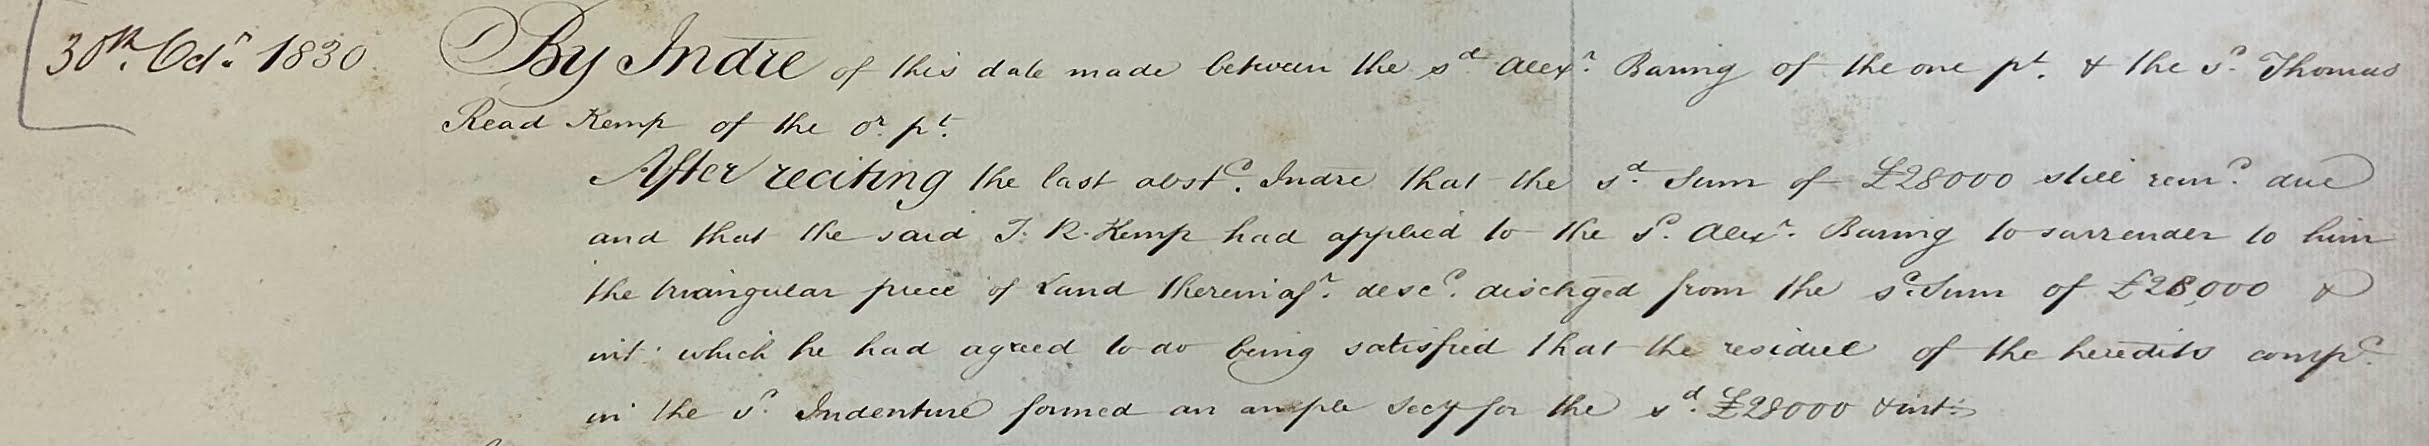 30th. Octr. 1830
By Indre of this date made between the sd. Alexr. Baring of the one pt. & the sd. Thomas
Read Kemp of the or. pt.
After reciting the last abstd. Indre that the sd. Sum of £28000 still remd. due
and that the said T. R. Kemp had applied to the sd. Alexr. Baring to surrender to him
the triangular piece of Land thereinafr. descd. dischged from the sd. Sum of £28,000 &
int: which he had agreed to do being satisfied that the residue of the heredits compd.
in the sd. Indenture formed an ample secy for the sd. £28000 & int: